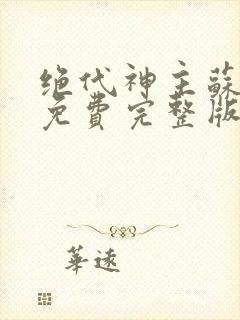 绝代神主蘇
免費完整版
華遠